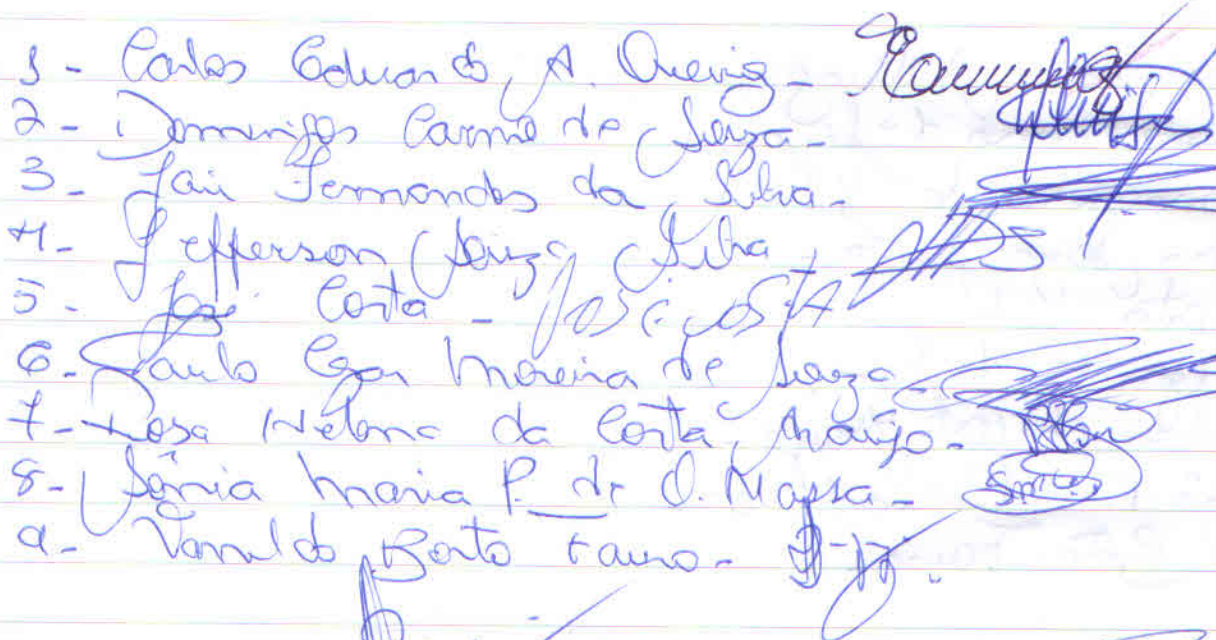 1 - Carlos Eduardo A. Queiroz -
2 - Domingos Carmo de Souza -
3 - Jair Fernandes da Silva -
4 - Jefferson Souza Silva
5 - José Costa - JOSÉ COSTA
6 - Paulo Cezar Moreira de Souza -
7 - Rosa Helena da Costa Araújo -
8 - Sônia Maria P. de O. Massa -
9 - Vanildo Bento